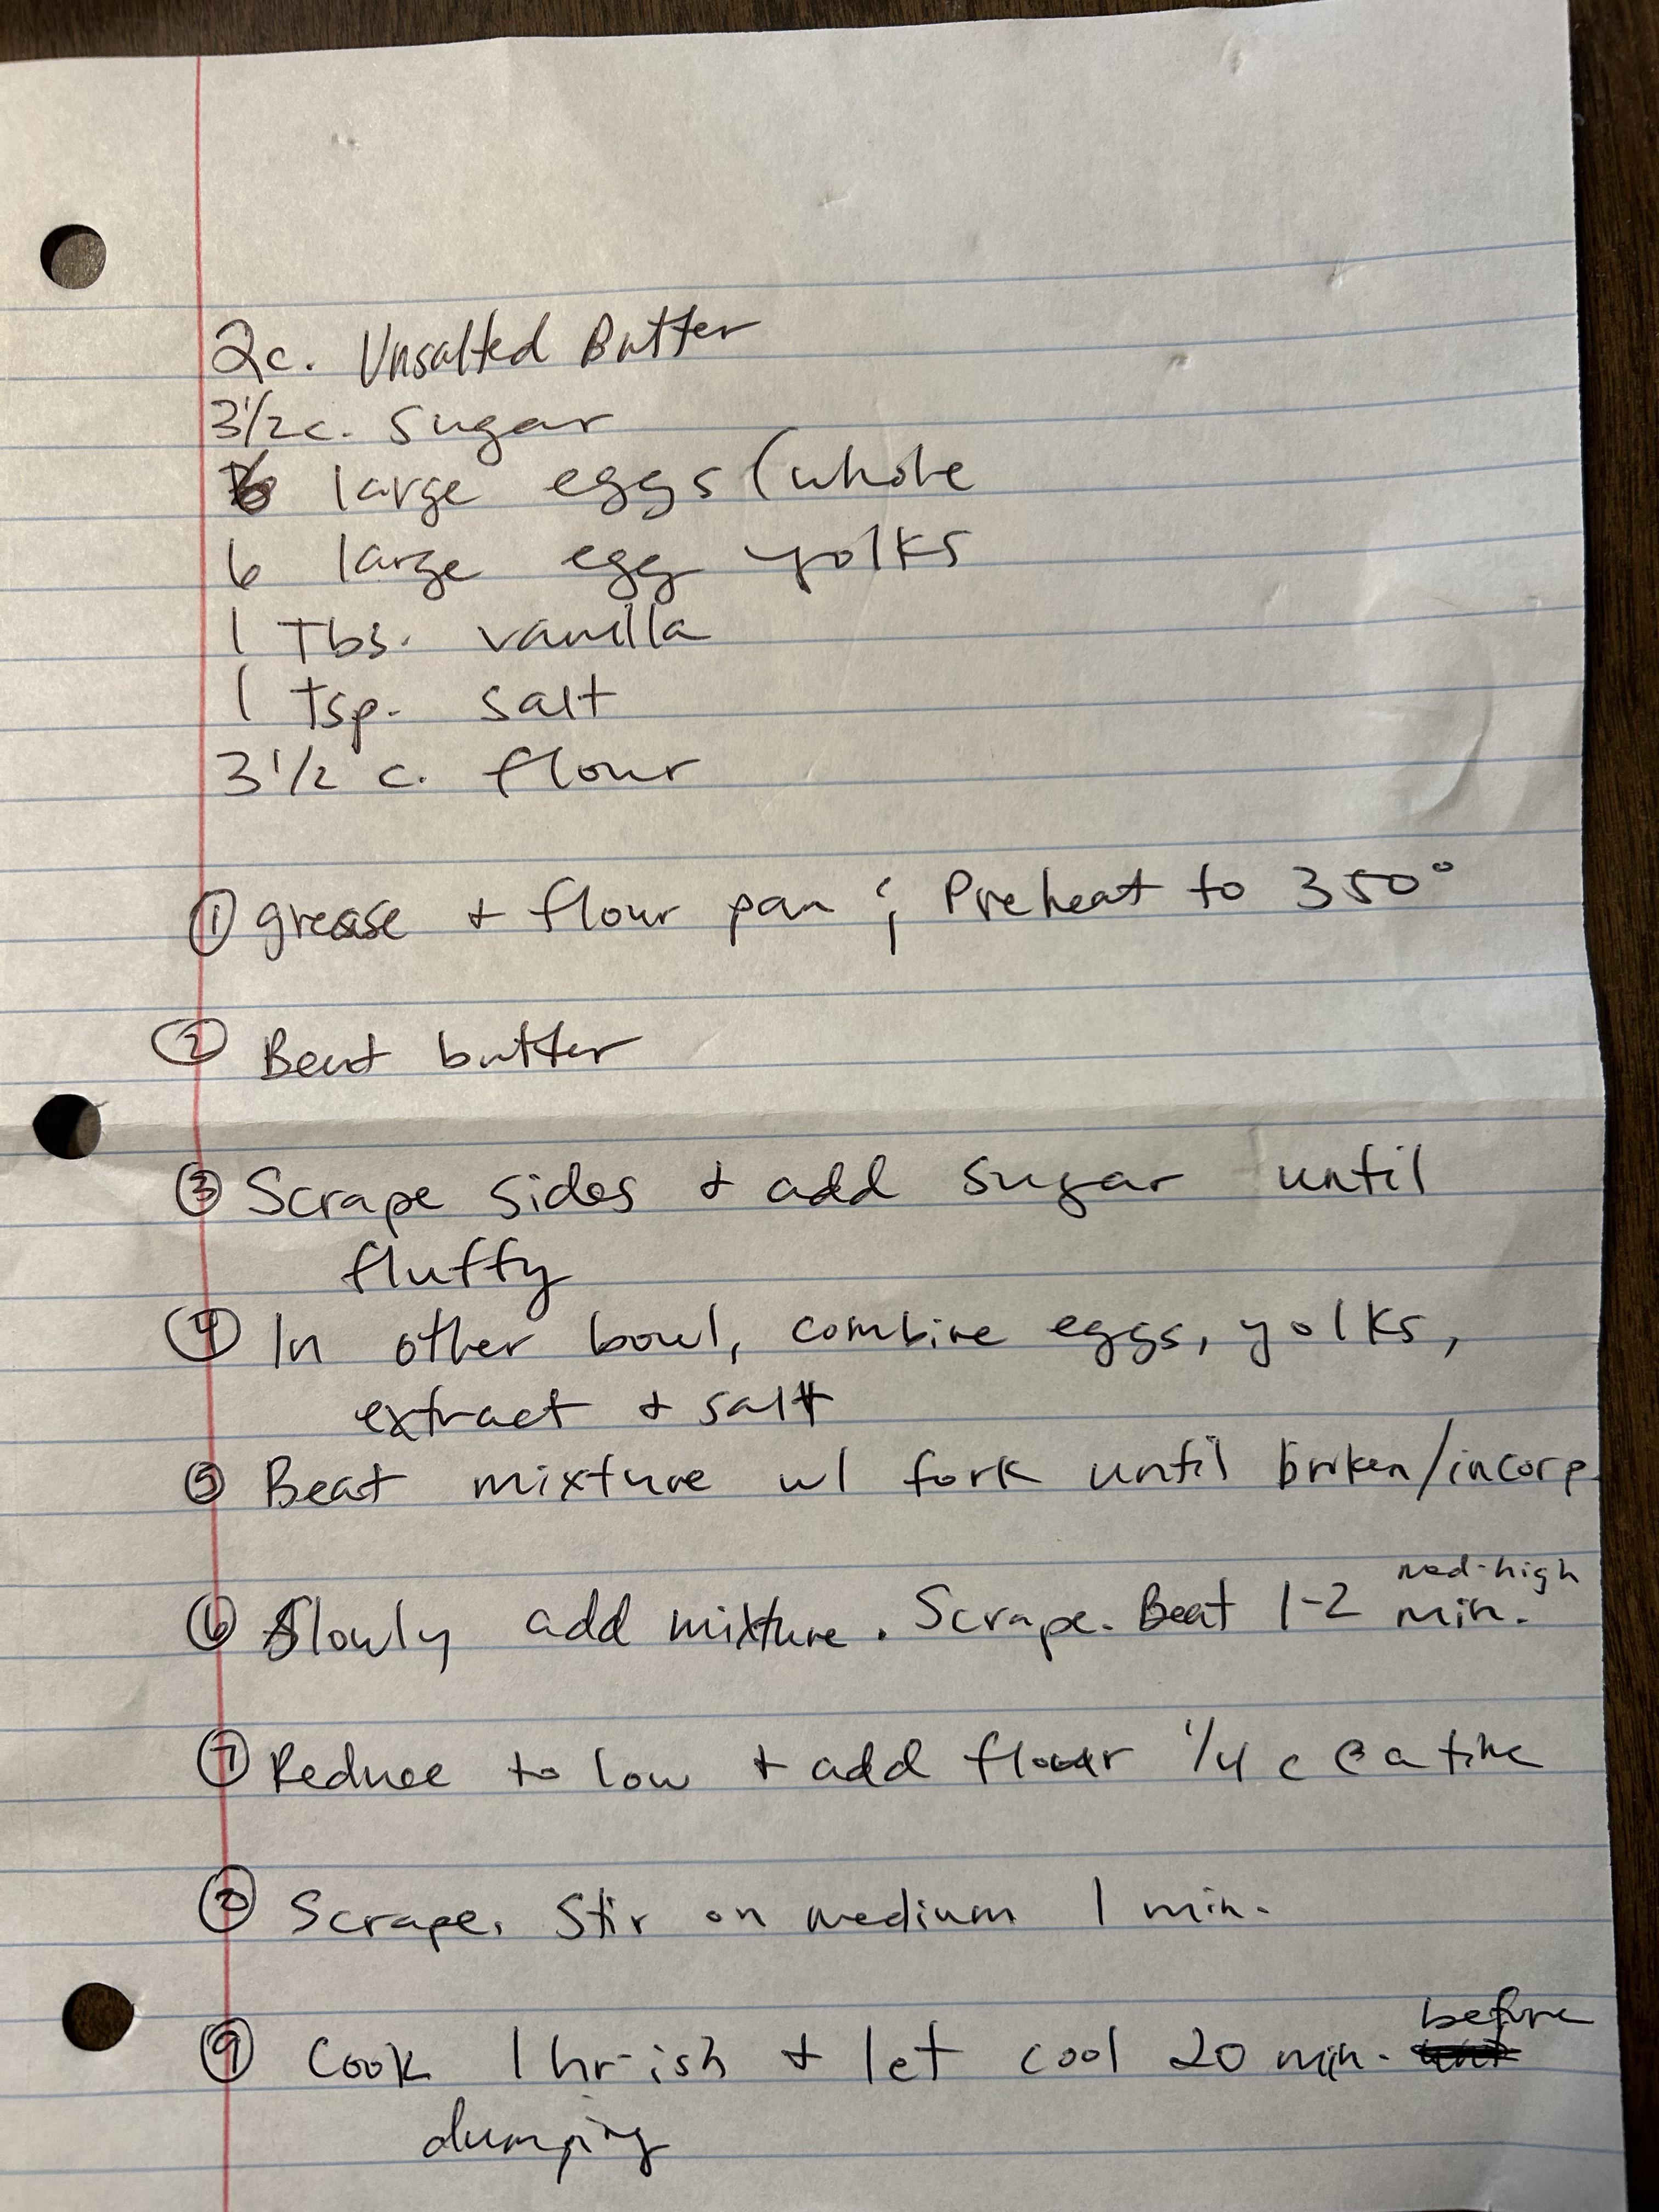 2c. Unsalted Butter
3 1/2 c. sugar
6 large eggs (whole
6 large egg yolks
1 Tbs. vanilla
1 tsp. salt
3 1/2 c. flour
① grease & flour pan ; Preheat to 350°
② Beat butter
③ Scrape sides & add sugar until
fluffy
④ In other bowl, combine eggs, yolks,
extract & salt
⑤ Beat mixture w/ fork until broken/incorp.
med-high
⑥ Slowly add mixture. Scrape. Beat 1-2 min.
⑦ Reduce to low & add flour 1/4 c @ a time
⑧ Scrape. Stir on medium 1 min.
before
⑨ Cook 1 hr-ish & let cool 20 min.
dumping